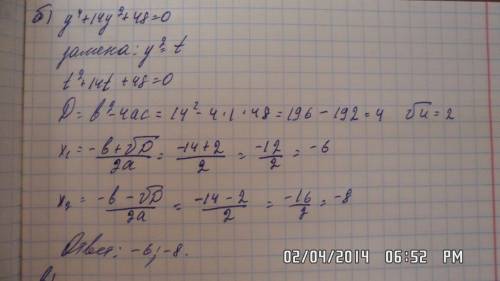 б) y⁴+14y²+48=0
замена: y²=t
t²+14t+48=0
D=b²-4ac=14²-4·1·48=196-192=4 √4=2
x₁=(-b+√D)/2a=(-14+2)/2=-12/2=-6
x₂=(-b-√D)/2a=(-14-2)/2=-16/2=-8
Ответ: -6; -8.
02/04/2014 06:52 PM